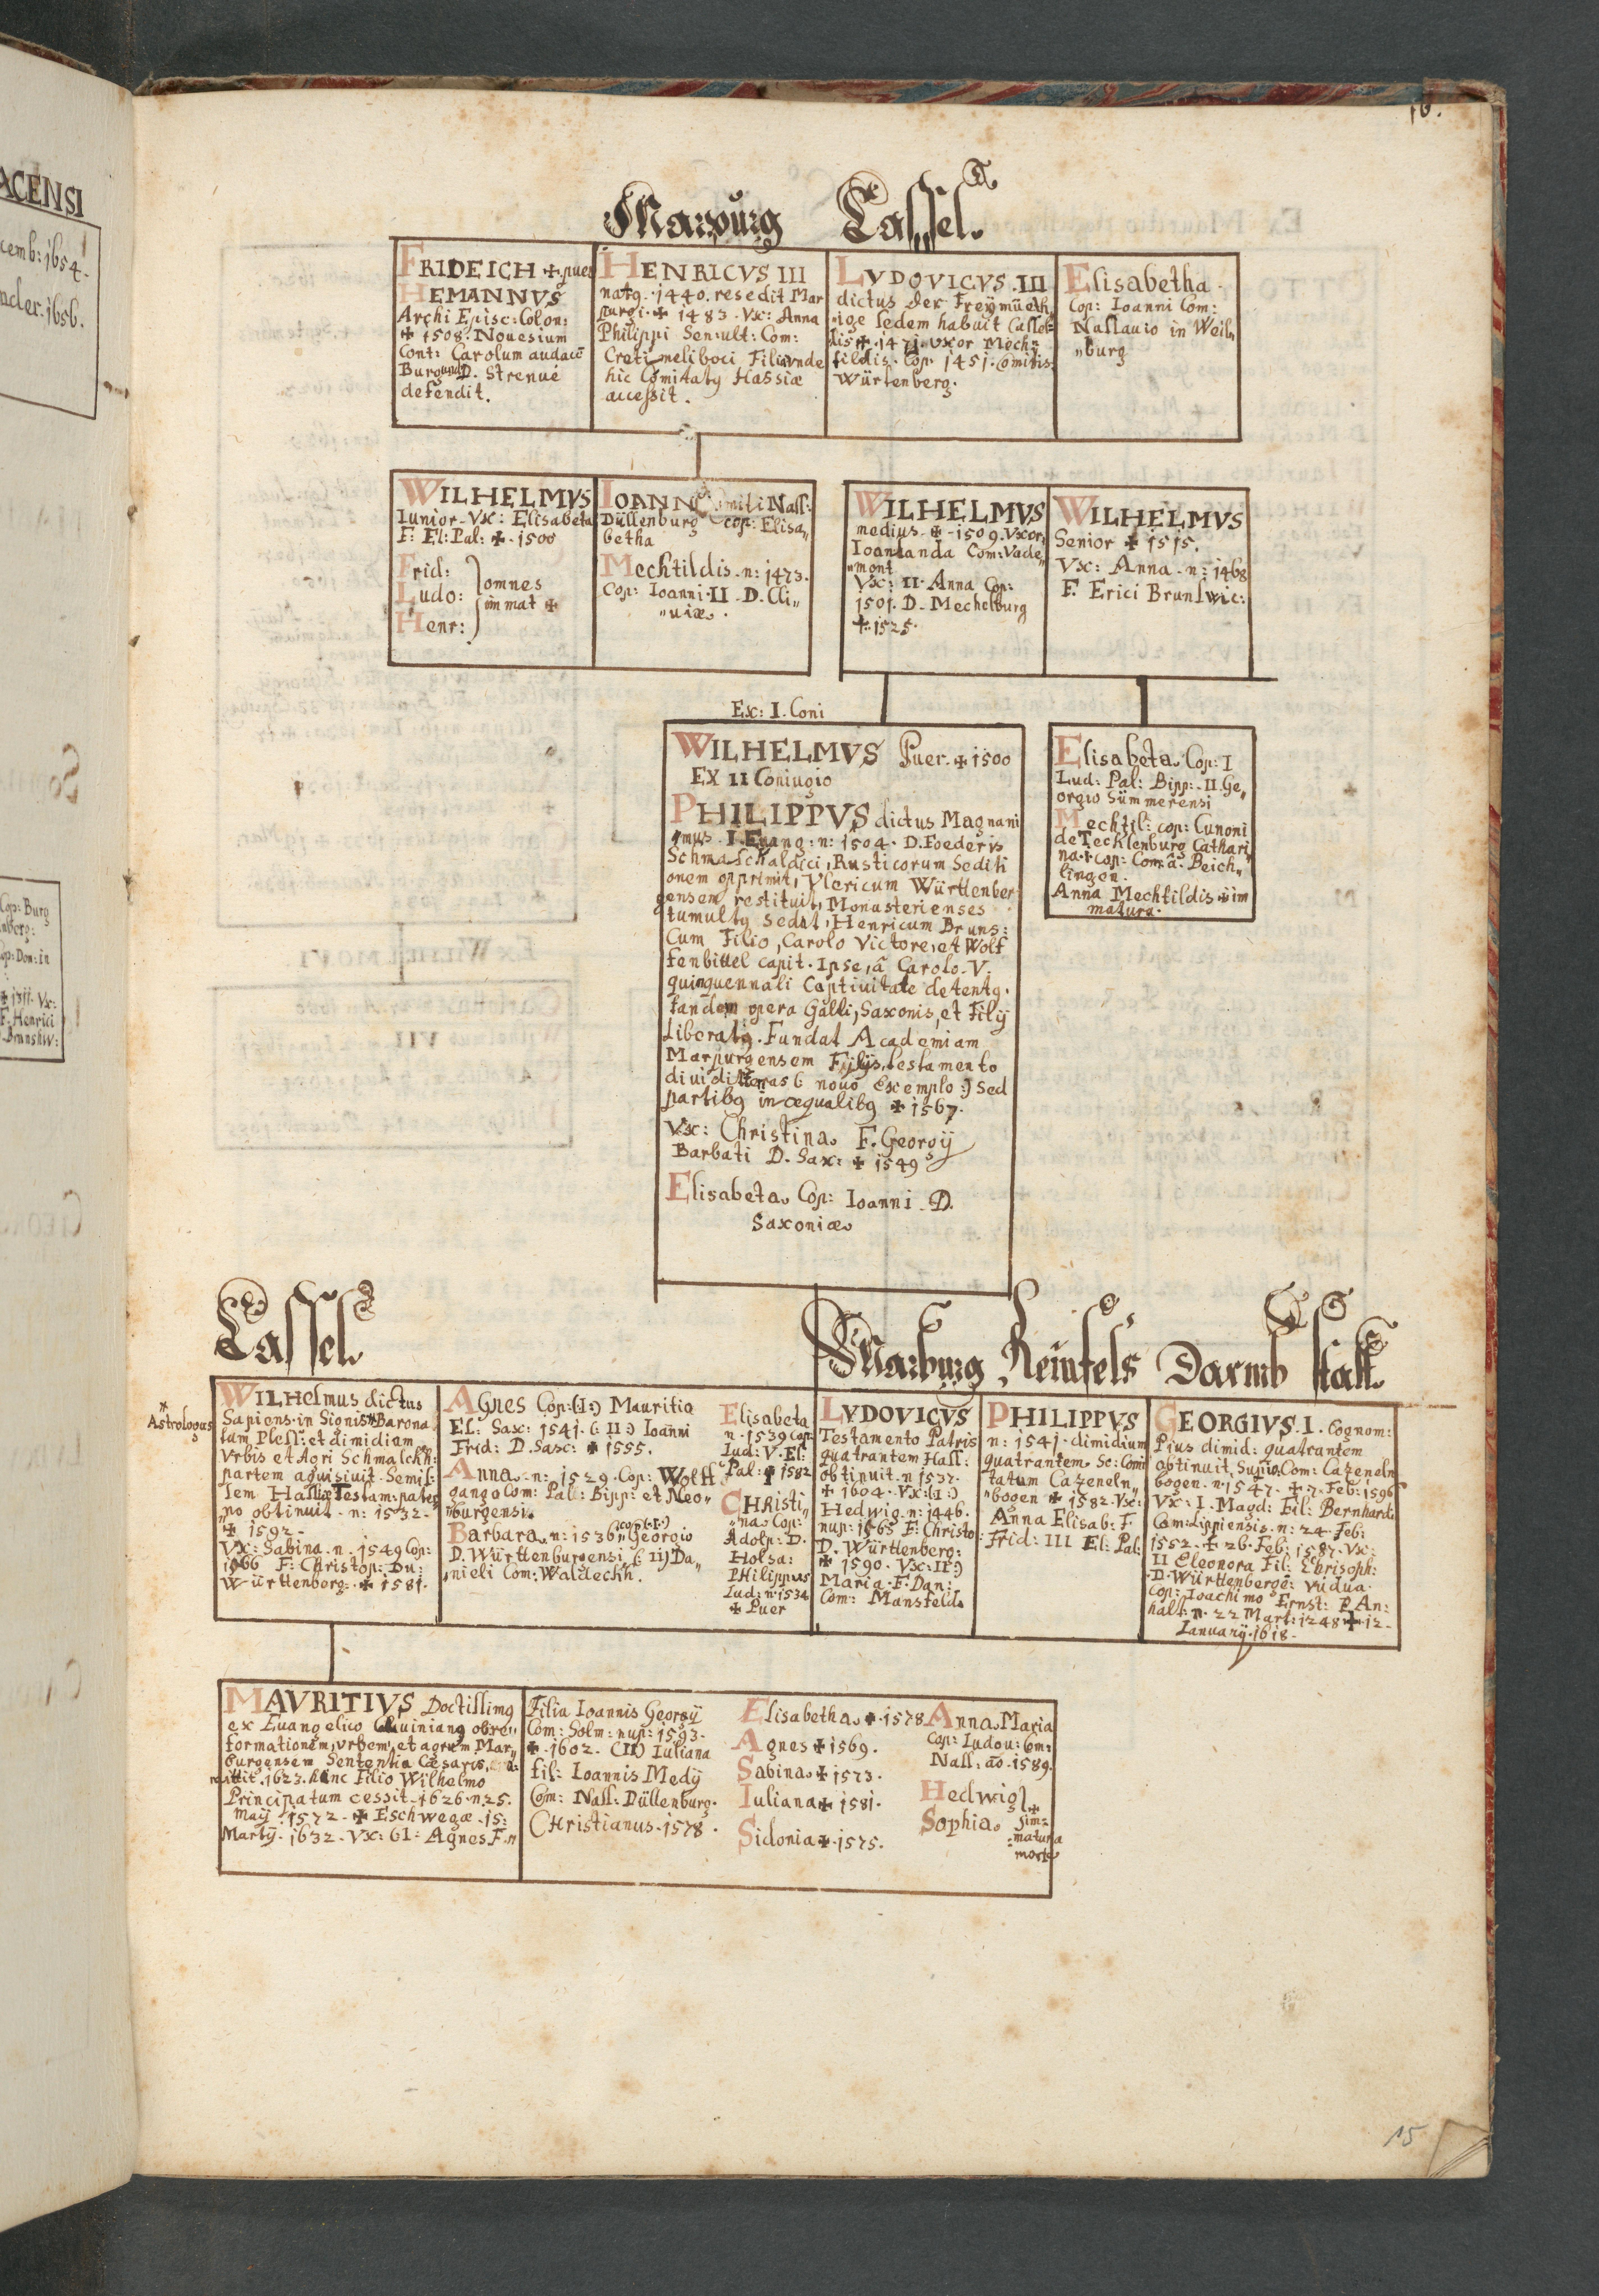 ACENSI
cemb: 1654.
1656.
Cop: Burg
Cop: Don: in
F. Henrici
16.
Marpurg Cassel.
FRIDEICH ✠ puer
HEMANNVS
Archi Episc: Colon:
✠ 1508. Novesium
Cont: Carolum audacē
Burgund D. Strenué
defendit.
HENRICVS III
natg. 1440. resedit Mar
purgi. ✠ 1483. Vx: Anna
Philippi Sen: ult: Com:
Creti meliboci Filia vnde
hic Comitatg Hassiæ
accessit.
LVDOVICVS. III
dictus der Freymüeth,,
,,ige sedem habuit Cassel=
lis ✠. 1471. vxor Mech=
tildis. Cop: 1451. Comitis
Würtenberg.
Elisabetha.
Cop: Ioanni Com:
Nassauio in Weil,,
,,burg
WILHELMVS
Iunior. Vx: Elisabeta
F: El: Pal: ✠. 1500
Frid:
Ludo: omnes
im̄at ✠
Henr:
IOANN Comiti Nass:
Düllenburg cop: Elisa,,
betha
Mechtildis. n: 1473.
Cop: Ioanni. II. D. Cli,,
,,uiæ.
WILHELMVS
medius ✠. 1509. Vxor
Ioanlanda Com: Vade,,
,,mont
Vx: II. Anna Cop:
1501. D. Mechelburg
✠. 1525.
WILHELMVS
Senior ✠ 1515.
Vx: Anna. n: 1468
F. Erici Brunswic:
Ex: I. Coni
WILHELMVS Puer. ✠ 1500
EX II Coniugio
PHILIPPVS dictus Magnani
mus. I. Evang: n: 1504. D. Foederis
Schmalchaldici, Rusticorum Sediti
onem opprimit, Vlericum Würtlenber
gensem restituit, Monasterienses
tumultg sedat, Henricum Bruns:
Cum Filio, Carolo Victore, et Wolf
fenbittel capit. Ipse, â Carolo. V.
quinquennali Captiuitate detentg.
tandem opera Galli, Saxonis, et Filÿ
Liberatg. Fundat Academiam
Marpurgensem Fylÿs, testamento
diuidit terras (: nouo Exemplo :) sed
partibg inæqualibg ✠ 1567.
Vx: Christina. F. Georgÿ
Barbati D. Sax: ✠ 1549
Elisabeta. Cop: Ioanni. D.
Saxoniæ.
Elisabeta. Cop: I
Lud: Pal: Bipp:. II. Ge,,
orgio Sümmerensi
Mechtil: cop: Cunoni
de Tecklenburg Cathari
na. cop: Com: â. Beich,,
lingen.
Anna Mechtildis ✠ im
matura.
Cassel.
Marburg Reinfels Darmb statt.
* Astrologus
WILHELmus dictus
Sapiens. in Sionis* Barona
tum Pless: et dimidiam
Vrbis et Agri Schmalckh:
partem aquisiuit. Semis:
sem Hassiæ Testam: pater,,
,,no obtinuit. n: 1532.
✠ 1592.
Vx: Sabina. n. 1549 Cop:
1966 F: Christop: Du:
Würtlenberg. ✠ 1581.
AGnes Cop: (I:) Mauritio
El: Sax: 1541. (: II :) Ioanni
Frid: D. Saxc: ✠ 1555.
Anna. n: 1529. Cop: Wolff
gango Com: Pal: Bipp: et Neo,,
,,burgensi.
Barbara. n: 1536. cop: (: I :) Georgio
D. Württenburgensi (: II) Da,,
,,nieli Com: Waldechh.
Elisabeta
n. 1539 cop:
Lud: V. El:
Pal: ✠ 1582
CHRisti,,
,,na. Cop:
Adolp: D.
Holsa:
PHilippus
Lud: n. 1534
✠ Puer
LVDOVICVS
Testamento Patris
quatrantem Hass:
obtinuit. n 1537.
✠ 1604. Vx: (I:)
Hedwig. n: 1446.
nup: 1565 F: Christo:
D. Württenberg:
✠ 1590. Vx: II:)
Maria. F. Dan:
Com: Mansfeld.
PHILIPPVS
n: 1541. dimidium
quatrantem. Sc: Comi
tatum Cazeneln,,
,,bogen ✠ 1582. Vx:
Anna Elisab: F.
Frid: III El: Pal:
GEORGIVS. I. Cognom:
Pius dimid: quatrantem
obtinuit, Supio, Com: Cazeneln
bogen. n. 1547. ✠. 7. Feb: 1596
Vx: I. Magd: Fil: Bernhardi
Com: Lippiensis. n: 24. Feb:
1552. ✠ 26. Feb: 1587. Vx:
II Eleonora Fil: Chrisoph:
D. Württenbergē: vidua.
cop: Ioachimo Ernst: P. An:
halt: n. 22 Mart: 1248 ✠. 12.
Ianuarÿ. 1618.
MAVRITIVS Doctissimg
ex Euangelico Caluiniang obre,,
formationem, vrbem, et agrum Mar,,
burgensem Sententia Cæsaris,
mittit. 1623. hinc Filio Wilhelmo
Principatum cessit. 1626. n. 25.
Maÿ 1572. ✠ Eschwegæ. 15:
Martÿ. 1632. Vx: (I: Agnes F.
Filia Ioannis Georgÿ
Com: Solm: nup: 1593.
✠. 1602. (II) Iuliana
fil: Ioannis Medÿ
Com: Nass: Düllenburg.
CHristianus. 1578.
Elisabetha. ✠. 1578
Agnes ✠ 1569.
Sabina. ✠ 1573.
Iuliana ✠ 1581.
Sidonia ✠. 1575.
Anna Maria
Cop: Ludou: Com:
Nass: aō. 1589.
Hedwig ✠
Sophia. im=
=matura
morte
15